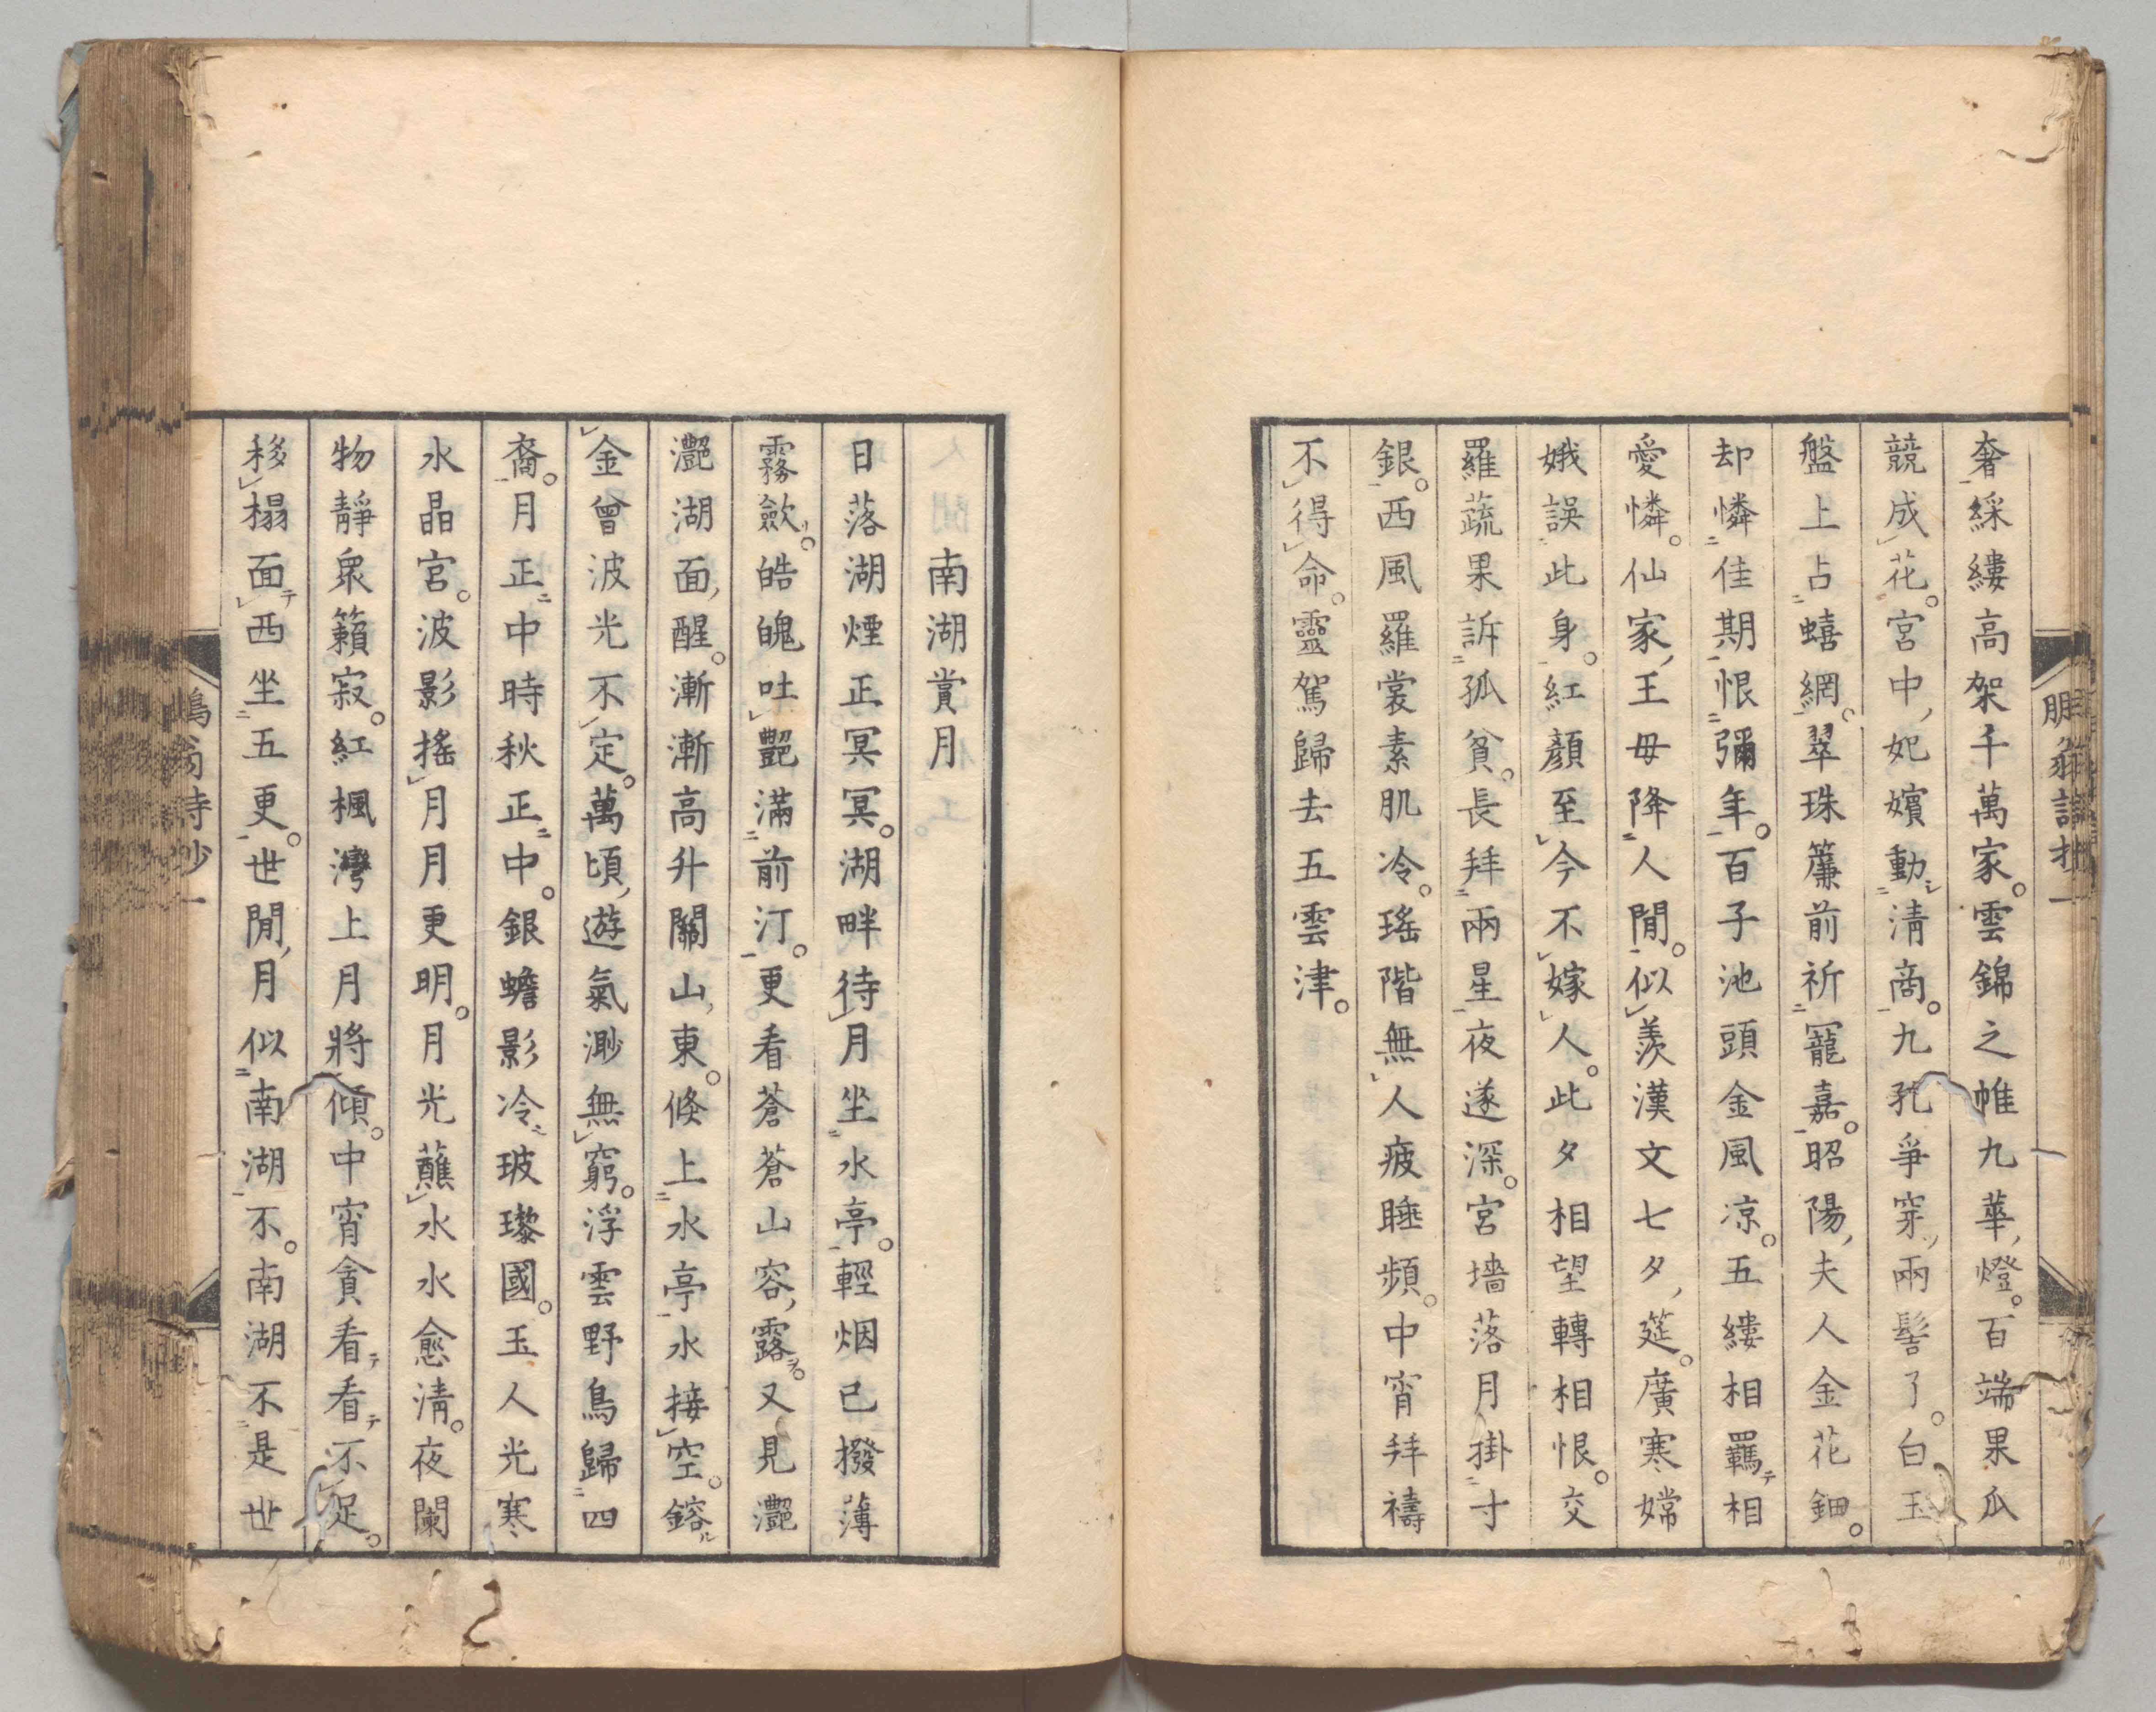 奢綵縷高架千萬家。雲錦之帷九華燈。百端果瓜
競成花。宮中妃嬪動清商。九孔爭穿兩髻了。白玉
盤上占蟢網。翠珠簾前祈寵嘉。昭陽夫人金花鈿。
却憐佳期恨彌年。百子池頭金風凉。五縷相羈相
愛憐。仙家王母降人間。似羨漢文七夕筵。廣寒嫦
娥誤此身。紅顏至今不嫁人。此夕相望轉相恨。交
羅蔬果訴孤貧。長拜兩星夜遂深。宮墻落月掛寸
銀。西風羅裳素肌冷。瑤階無人疲睡頻。中宵拜禱
不得命。靈駕歸去五雲津。
南湖賞月
日落湖煙正冥冥。湖畔待月坐水亭。輕烟已撥薄
霧歛。皓魄吐艷滿前汀。更看蒼蒼山容露。又見灔
灔湖面醒。漸漸高升關山東。倏上水亭水接空。鎔
金曾波光不定。萬頃遊氣渺無窮。浮雲野鳥歸四
裔。月正中時秋正中。銀蟾影冷玻瓈國。玉人光寒
水晶宮。波影搖月月更明。月光蘸水水愈淸。夜闌
物靜衆籟寂。紅楓灣上月將傾。中宵貪看看不足。
移榻面西坐五更。世閒月似南湖不。南湖不是世
翁詩抄一